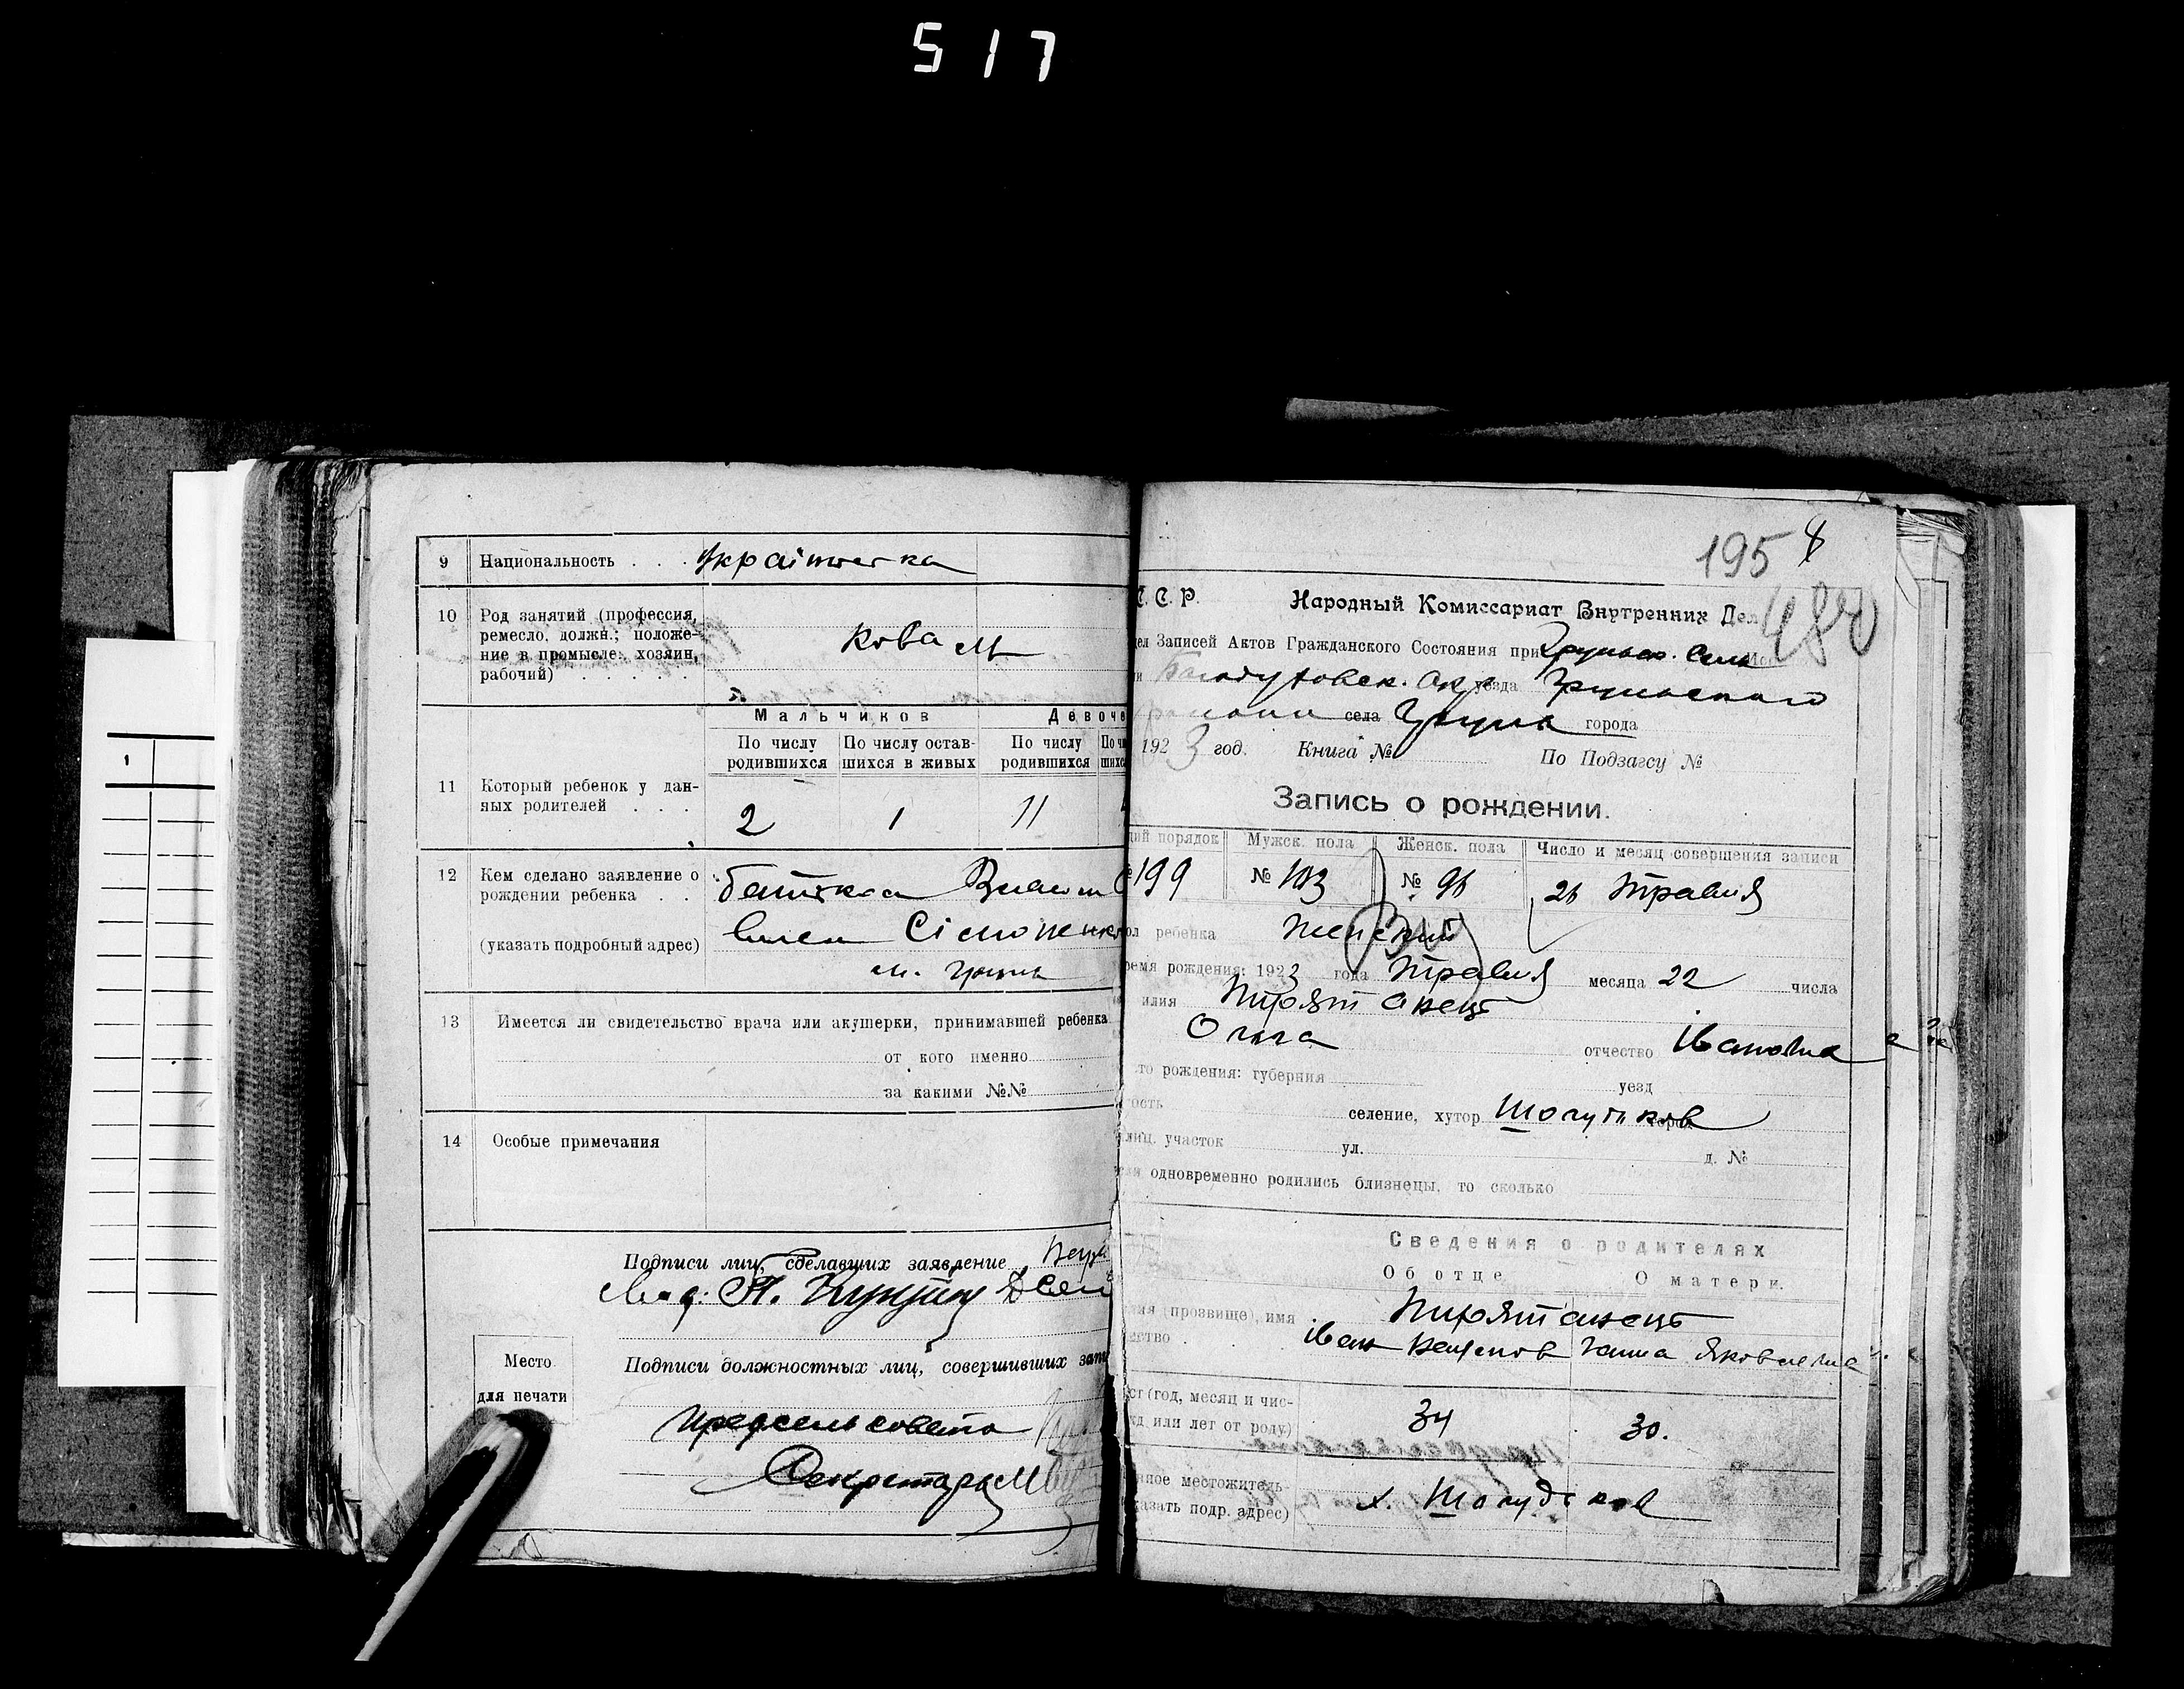 517
9 Национальность . . . Українка
10 Род занятий (профессия,
ремесло, должн.; положе-
ние в промысле: хозяин,
рабочий) . . . . .
Коваль
Мальчиков Девоче
По числу родившихся По числу остав-шихся в живых По числу родившихся
11 Который ребенок у дан-
ных родителей . . .
2 1 11
12 Кем сделано заявление о
рождении ребенка . .
(указать подробный адрес)
батька
Сімоненко
м. Грунь
13 Имеется ли свидетельство врача или акушерки, принимавшей ребенка
от кого именно
за какими №№
14 Особые примечания
Подписи лиц, сделавших заявление
Место
для печати
Подписи должностных лиц, совершивших запи
Предсельсовета
Секретарь
195
480
С. С. Р. Народный Комиссариат Внутренних Дел
дел Записей Актов Гражданского Состояния при Груньск. Сель
Богодуховск. Окр уезда Груньского
района села Грунь города
1923 год. Книга № По Подзагсу №
Запись о рождении.
щий порядок Мужск. пола Женск. пола Число и месяц совершения записи
199 № 103 № 96 26 Травня
ол ребенка Женский
ремя рождения: 1923 года Травня месяца 22 числа
илия Пирятанець
Ольга отчество Івановна
то рождения: губерния уезд
ость селение, хутор Шолудьков город
лиц. участок ул. д. №
одновременно родились близнецы, то сколько
Сведения о родителях
Об отце О матери
(прозвище), имя Пирятанець
ество Іван Ганна Яковлевна
ст (год, месяц и чис-
жд. или лет от роду) 34 30.
нное местожитель-
казать подр. адрес) х. Шолудьков